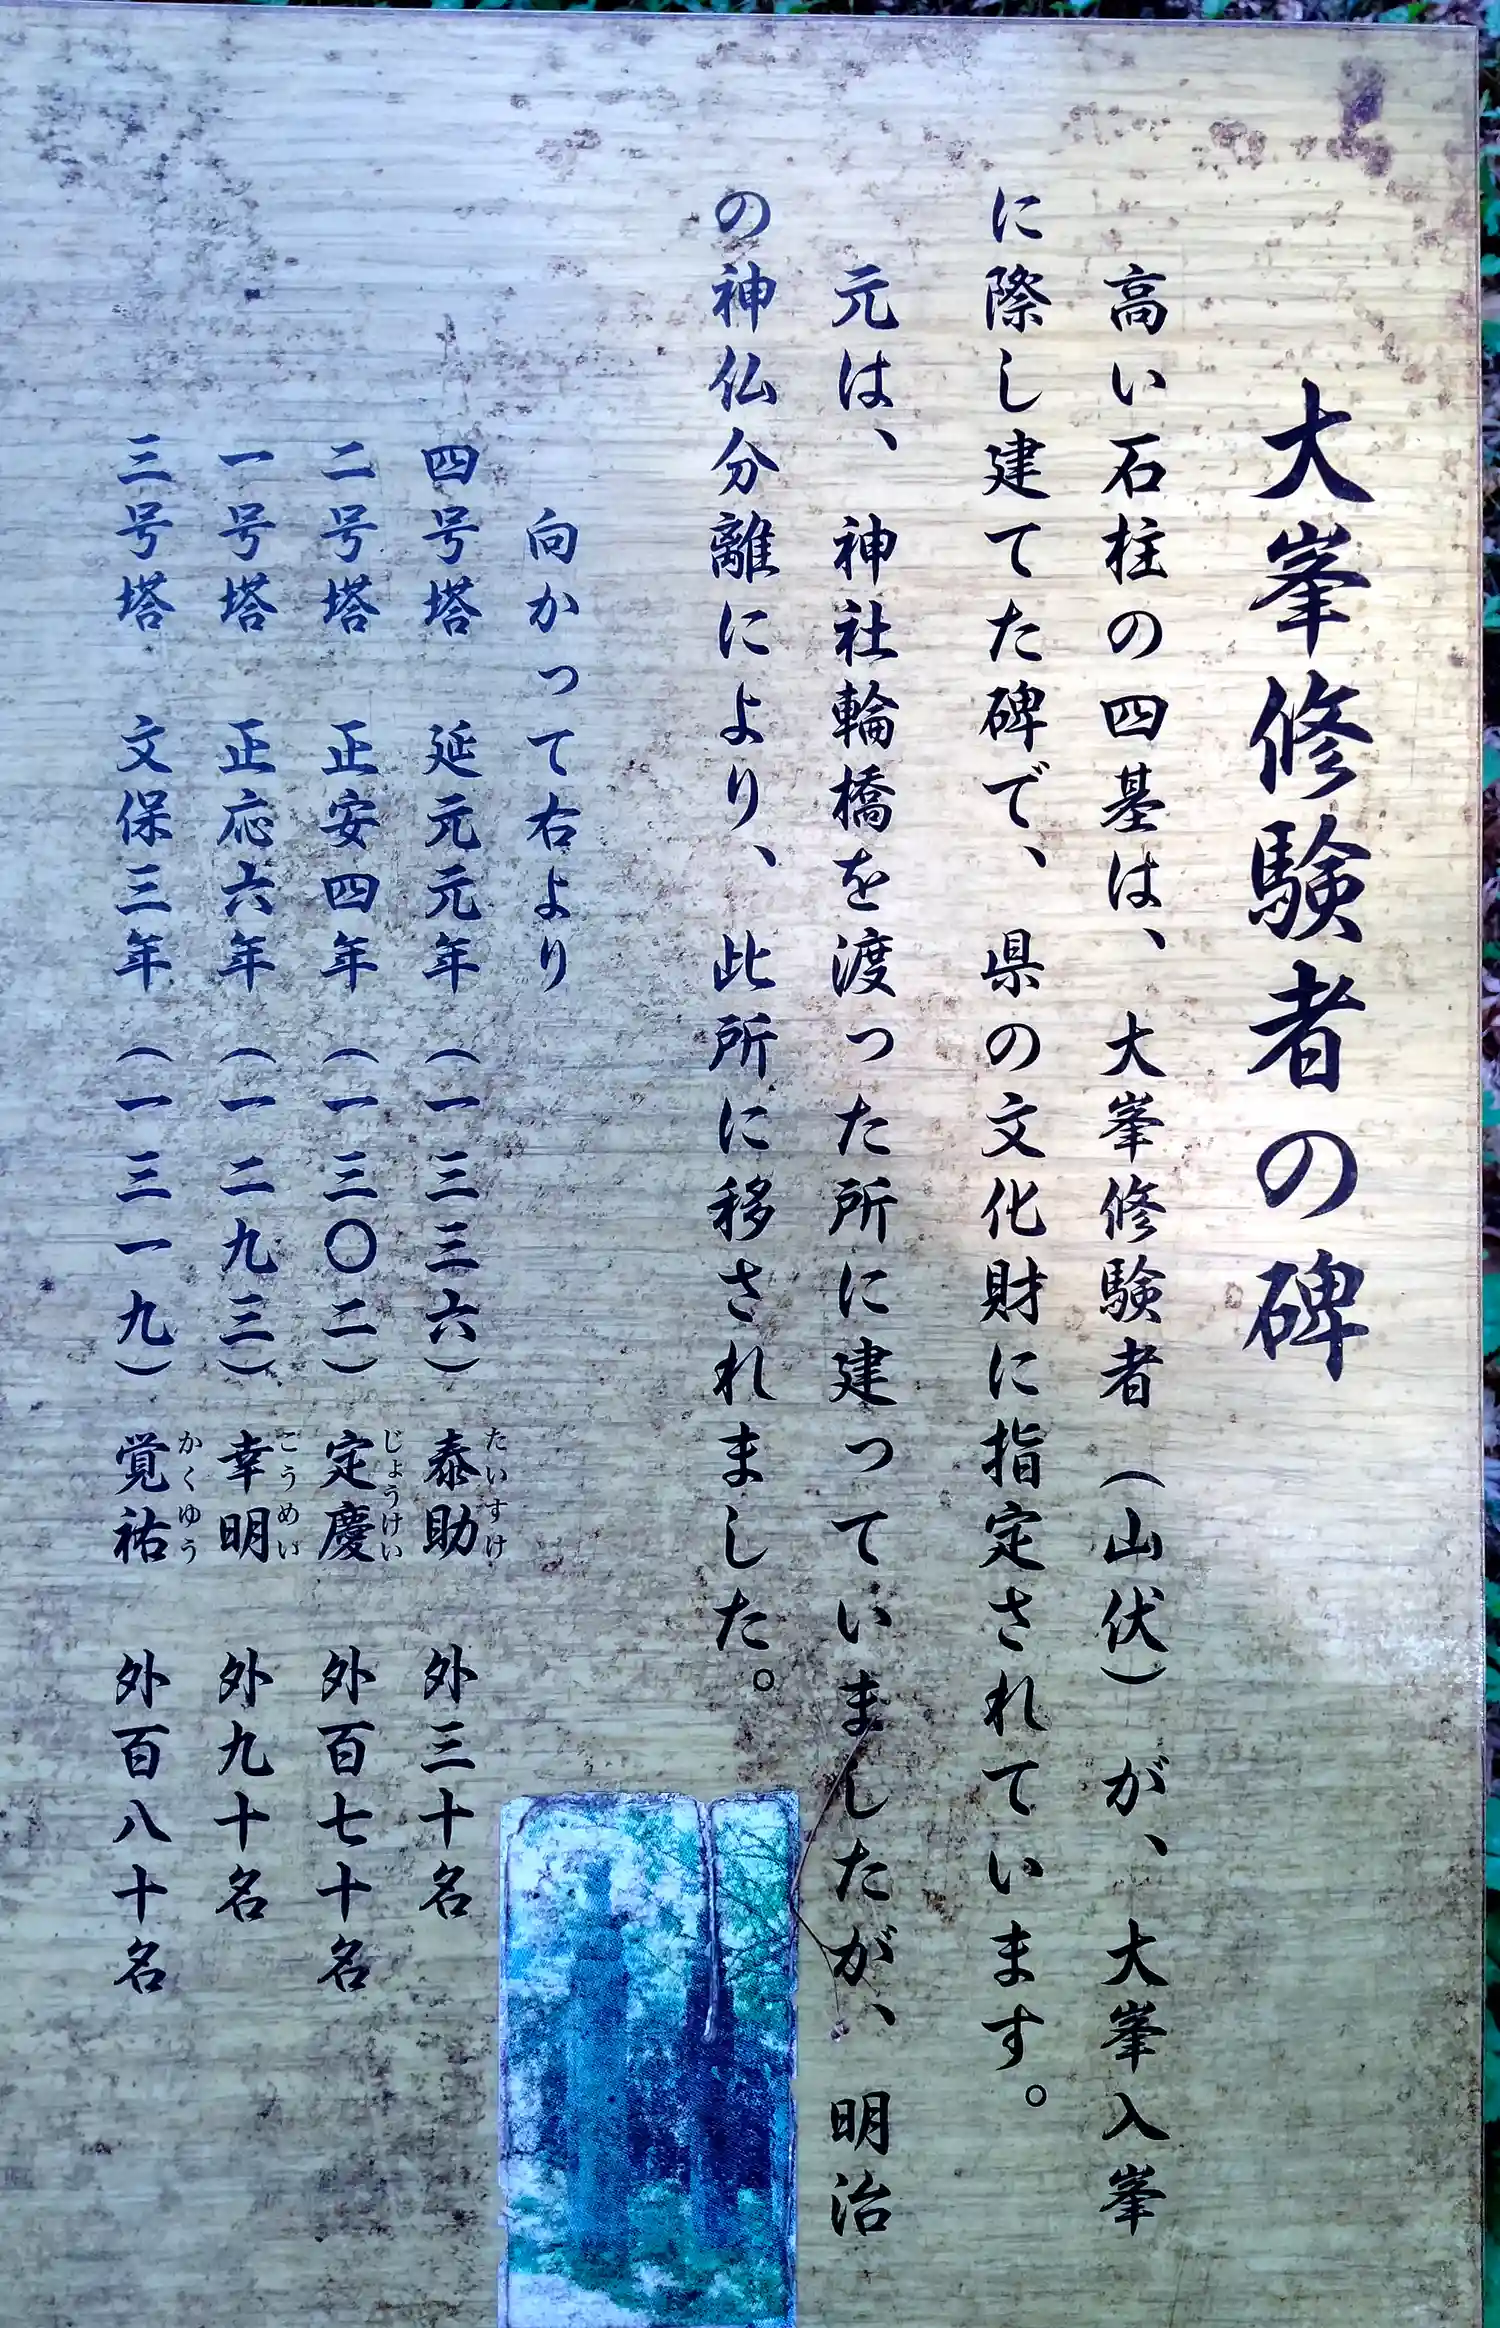 大峯修験者の碑
高い石柱の四基は、大峯修験者（山伏）が、大峯入峯
に際し建てた碑で、県の文化財に指定されています。
元は、神社輪橋を渡った所に建っていましたが、明治
の神仏分離により、此所に移されました。
向かって右より
四号塔 延元元年（一三三六）泰助 外三十名
たいすけ
二号塔 正安四年（一三〇二）定慶 外百七十名
じょうけい
一号塔 正応六年（一二九三）幸明 外九十名
こうめい
三号塔 文保三年（一三一九）覚祐 外百八十名
かくゆう